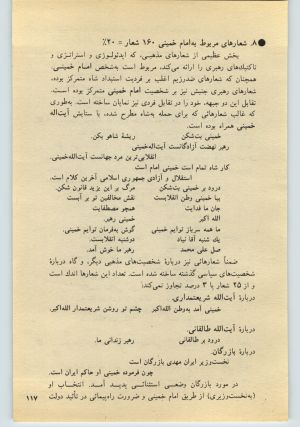 ● ۸. شعارهای مربوط به امام خمینی ۱۶۰ شعار = ۲۰٪
بخش عظیمی از شعارهای مذهبی، که ایدئولوژی و استراتژی و
تاکتیک‌های رهبری را ارائه می‌کند، مربوط است به‌شخص امام خمینی.
همچنان که شعارهای ضدرژیم اغلب بر فردیت استبداد شاه متمرکز بوده،
شعارهای رهبری جنبش نیز بر شخصیت امام خمینی متمرکز بوده است.
تقابل این دو جبهه، خود را در تقابل فردی نیز نمایان ساخته است. به‌طوری
که غالب شعارهائی که برای حمله به‌شاه مطرح شده، با ستایش آیت‌اله
خمینی همراه بوده است.
خمینی بت‌شکن ریشهٔ شاهو بکن.
رهبر نهضت آزادگانست آیت‌اله‌خمینی
انقلابی‌ترین مرد جهانست آیت‌اله‌خمینی.
کار شاه تمام است خمینی امام است
استقلال و آزادی جمهوری اسلامی آخرین کلام است.
درود بر خمینی بت‌شکن مرگ بر این یزید قانون شکن.
بیا خمینی وطن انقلابست نقش مخالفین تو بر آبست
جان ما فدایت همچو مصطفایت
الله اکبر خمینی رهبر.
ما همه سرباز توایم خمینی گوش به‌فرمان توایم خمینی.
یك شنبه آقا نیاد دوشنبه انقلابست.
صل علی محمد رهبر ما خوش آمد.
ضمناً شعارهائی نیز دربارهٔ شخصیت‌های مذهبی دیگر، و گاه دربارهٔ
شخصیت‌های سیاسی گذشته ساخته شده است. تعداد این شعارها اندك است
و از ۲۵ شعار یا ۳ درصد تجاوز نمی‌کند:
دربارهٔ آیت‌الله شریعتمداری.
خمینی آمد به‌وطن الله‌اکبر چشم تو روشن شریعتمدار الله‌اکبر.
دربارهٔ آیت‌الله طالقانی.
درود بر طالقانی رهبر زندانی ما.
دربارهٔ بازرگان.
نخست‌وزیر ایران مهدی بازرگان است
چون فرمودهٔ خمینی او حاکم ایران است.
در مورد بازرگان وضعی استثنائی پدید آمد. انتخاب او
(به‌نخست‌وزیری) از طریق امام خمینی و ضرورت راه‌پیمائی در تأئید دولت
۱۱۷